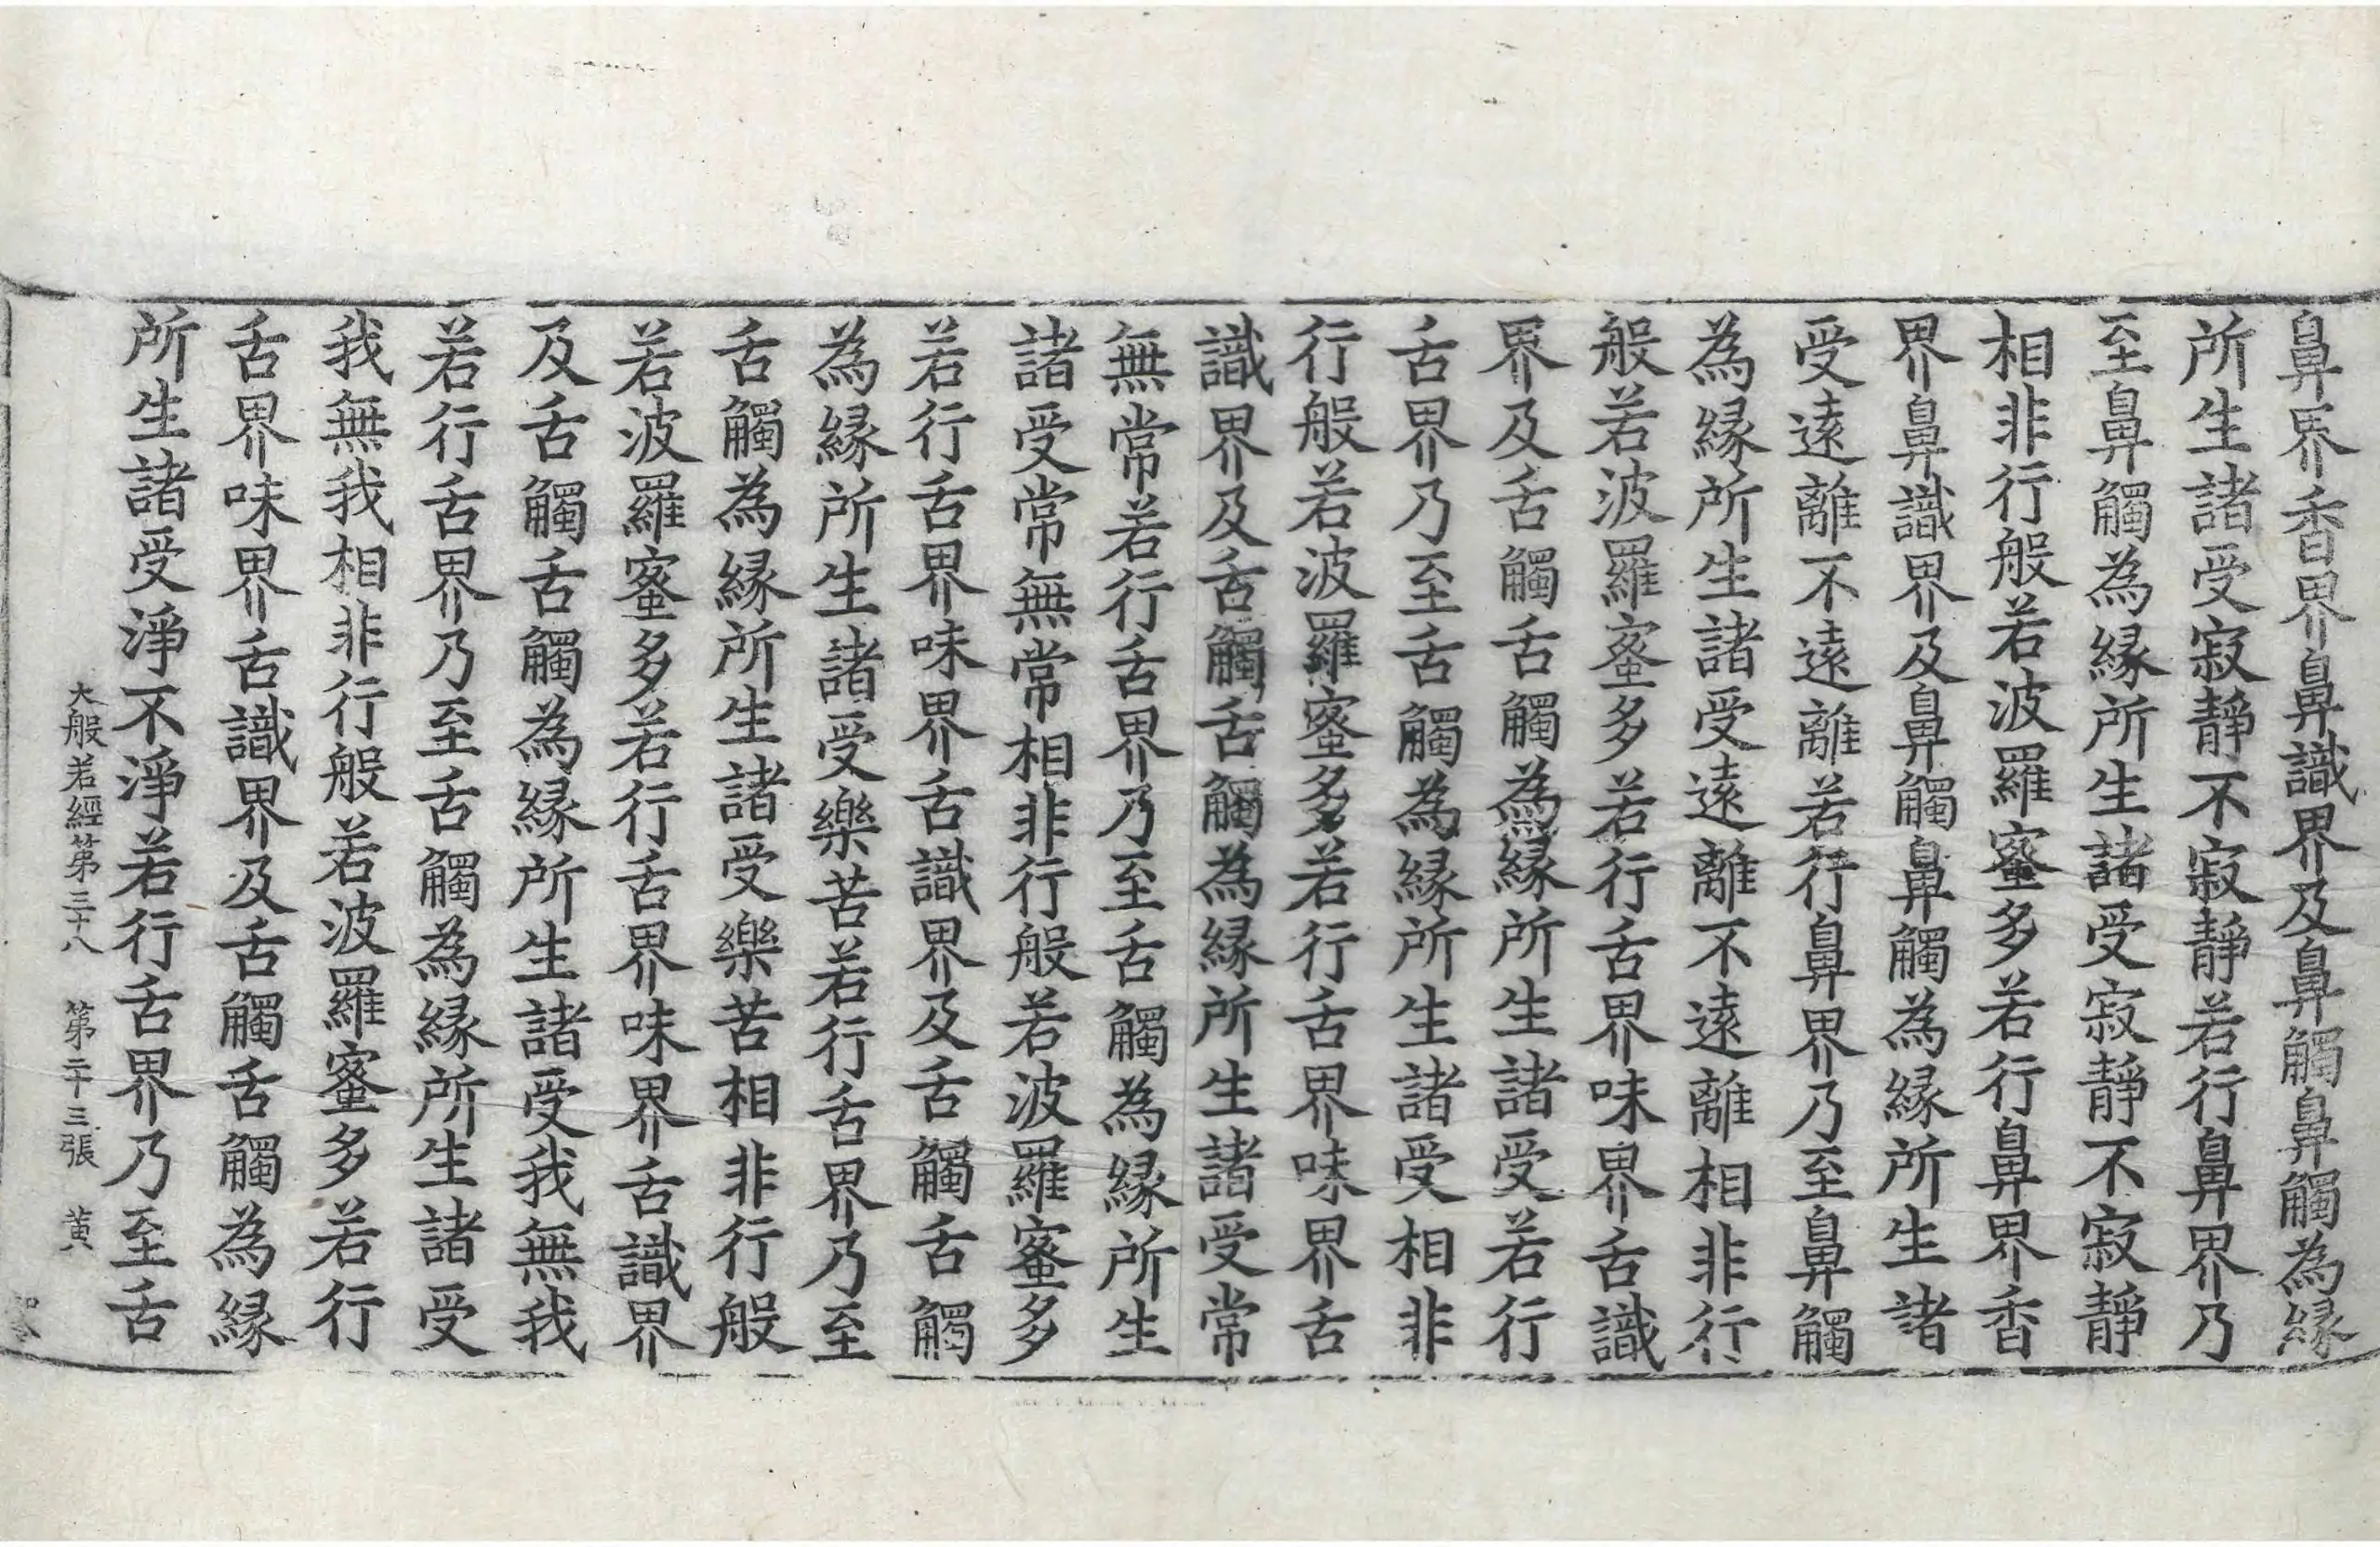 鼻界香界鼻識界及鼻觸鼻觸為緣
所生諸受寂靜不寂靜若行鼻界乃
至鼻觸為緣所生諸受寂靜不寂靜
相非行般若波羅蜜多若行鼻界香
界鼻識界及鼻觸鼻觸為緣所生諸
受遠離不遠離若行鼻界乃至鼻觸
為緣所生諸受遠離不遠離相非行
般若波羅蜜多若行舌界味界舌識
界及舌觸舌觸為緣所生諸受若行
舌界乃至舌觸為緣所生諸受相非
行般若波羅蜜多若行舌界味界舌
識界及舌觸舌觸為緣所生諸受常
無常若行舌界乃至舌觸為緣所生
諸受常無常相非行般若波羅蜜多
若行舌界味界舌識界及舌觸舌觸
為緣所生諸受樂苦若行舌界乃至
舌觸為緣所生諸受樂苦相非行般
若波羅蜜多若行舌界味界舌識界
及舌觸舌觸為緣所生諸受我無我
若行舌界乃至舌觸為緣所生諸受
我無我相非行般若波羅蜜多若行
舌界味界舌識界及舌觸舌觸為緣
所生諸受淨不淨若行舌界乃至舌
大般若經第三十八　第二十三張　黃